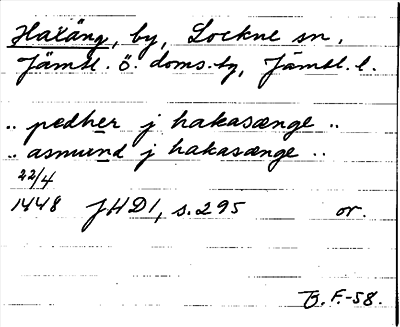 Haxäng, by, Lockne sn,
Jämtl. ö. doms.-bg, Jämtl. l.
.. pedher j hakasænge ..
.. asmund j hakasænge ..
22/4
1448 JHD1, s. 295 or.
B. F.-58.